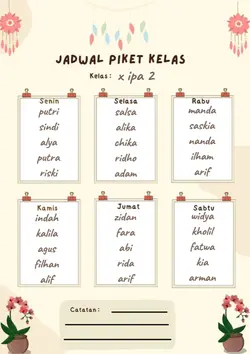 JADWAL PIKET KELAS
Kelas: x ipa 2
Senin
putri
sindi
alya
putra
riski
Selasa
salsa
alika
chika
ridho
adam
Rabu
manda
saskia
nanda
ilham
arif
Kamis
indah
kalila
agus
filhan
alif
Jumat
zidan
fara
abi
rida
arif
Sabtu
widya
kholil
fatwa
kia
arman
Catatan: